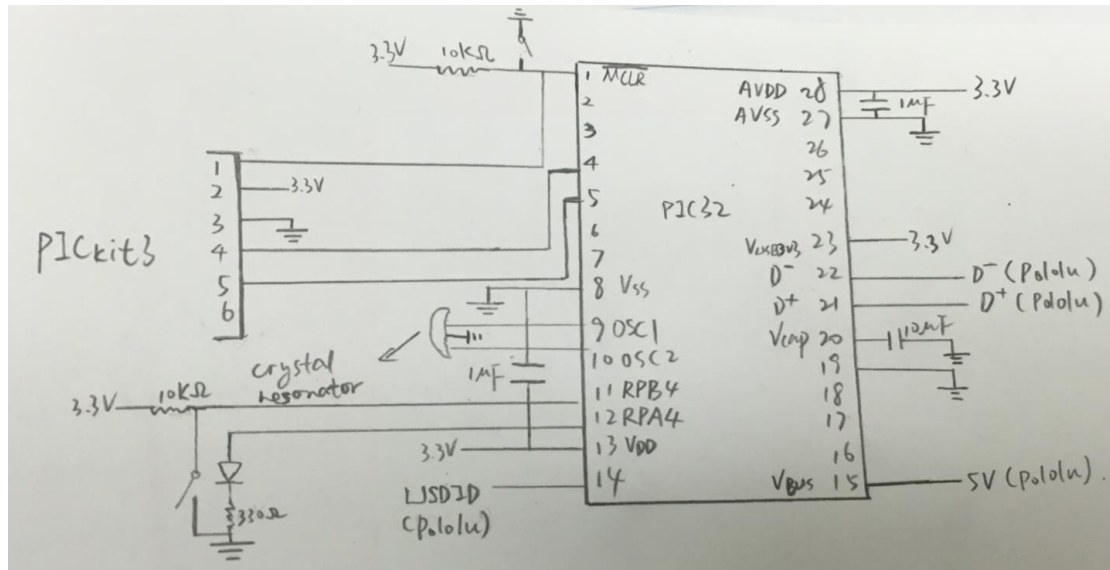 3.3V
10KΩ
1 MCLR
2
3
4
5
6
7
8 VSS
9 OSC1
10 OSC2
11 RPB4
12 RPA4
13 VDD
14
AVDD 28
AVSS 27
26
25
24
VUSB3V3 23
D- 22
D+ 21
Vcap 20
19
18
17
16
VBUS 15
PIC32
3.3V
1μF
3.3V
D- (Pololu)
D+ (Pololu)
10μF
5V (Pololu).
PICkit3
1
2
3
4
5
6
3.3V
crystal
resonator
1μF
3.3V
10KΩ
330Ω
3.3V
USBID
(Pololu)